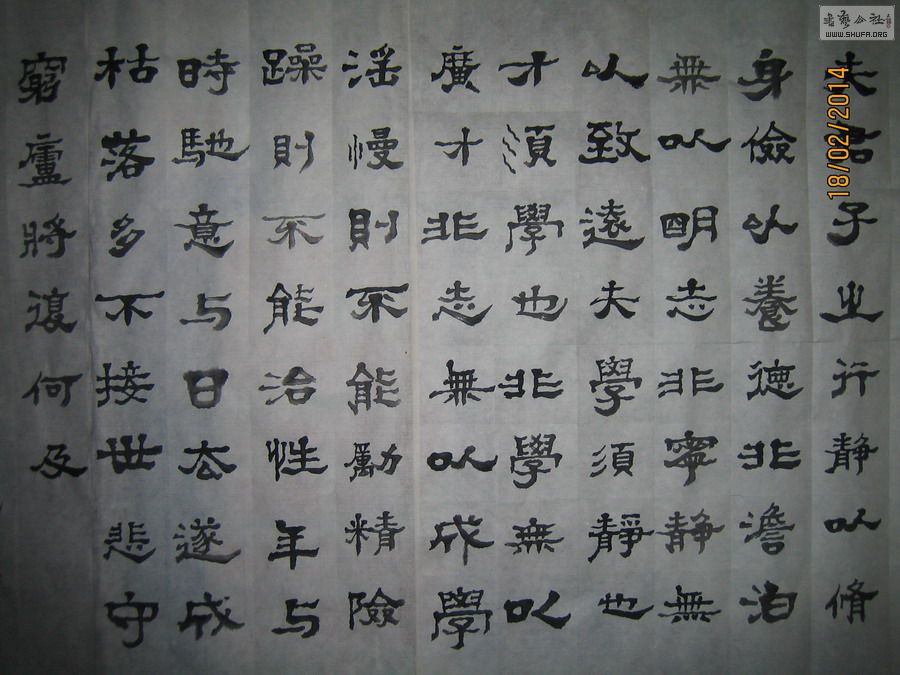 夫君子之行靜以脩
身儉以養德非澹泊
無以明志非寧靜無
以致遠夫學須靜也
才須學也非學無以
廣才非志無以成學
淫慢則不能勵精險
躁則不能治性年与
時馳意与日去遂成
枯落多不接世悲守
窮廬將復何及
18/02/2014
書藝公社
WWW.SHUFA.ORG